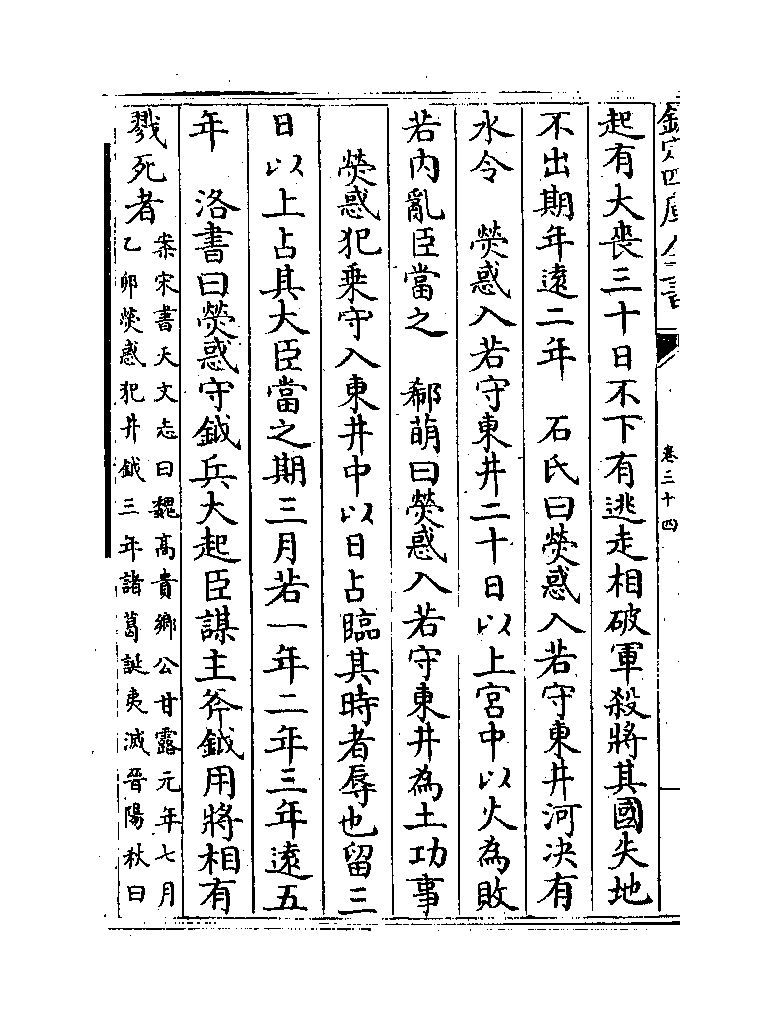 欽定四庫全書
卷三十四
起有大喪三十日不下有逃走相破軍殺將其國失地
不出期年遠二年　石氏曰熒惑入若守東井河決有
水令　熒惑入若守東井二十日以上宮中以火為敗
若內亂臣當之　郗萌曰熒惑入若守東井為土功事
熒惑犯乘守入東井中以日占臨其時者辱也留三
日以上占其大臣當之期三月若一年二年三年遠五
年　洛書曰熒惑守鉞兵大起臣謀主斧鉞用將相有
戮死者
案宋書天文志曰魏高貴鄉公甘露元年七月
乙卯熒惑犯井鉞三年諸葛誕夷滅晉陽秋曰